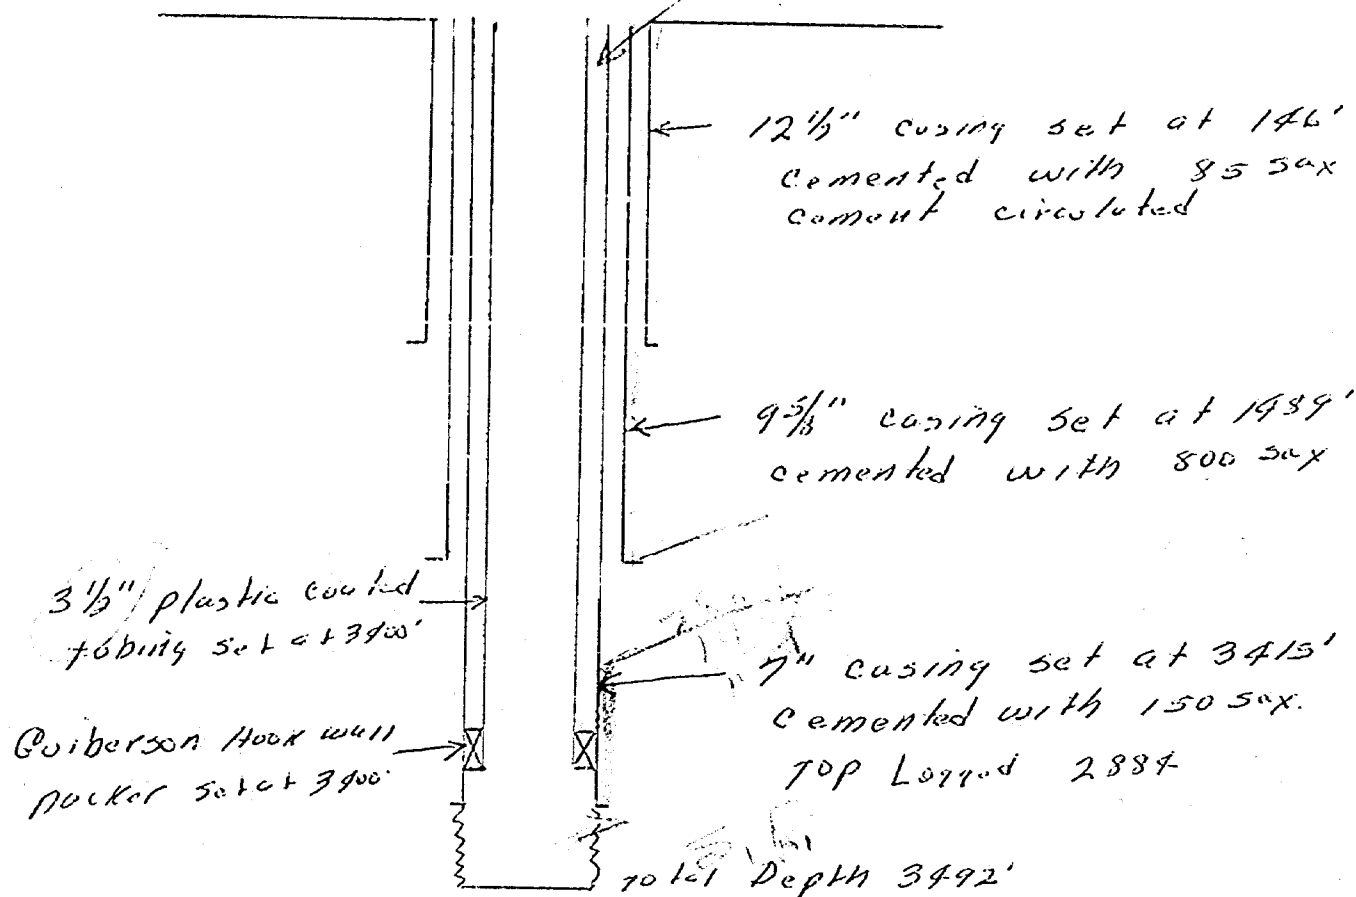 12 1/2" casing set at 146'
cemented with 85 sax
cement circulated
9 5/8" casing set at 1439'
cemented with 800 sax
3 1/2" plastic coated
tubing set at 3400'
7" casing set at 3415'
cemented with 150 sax.
Top Logged 2884
Guiberson Hook wall
packer set at 3400'
Total Depth 3492'